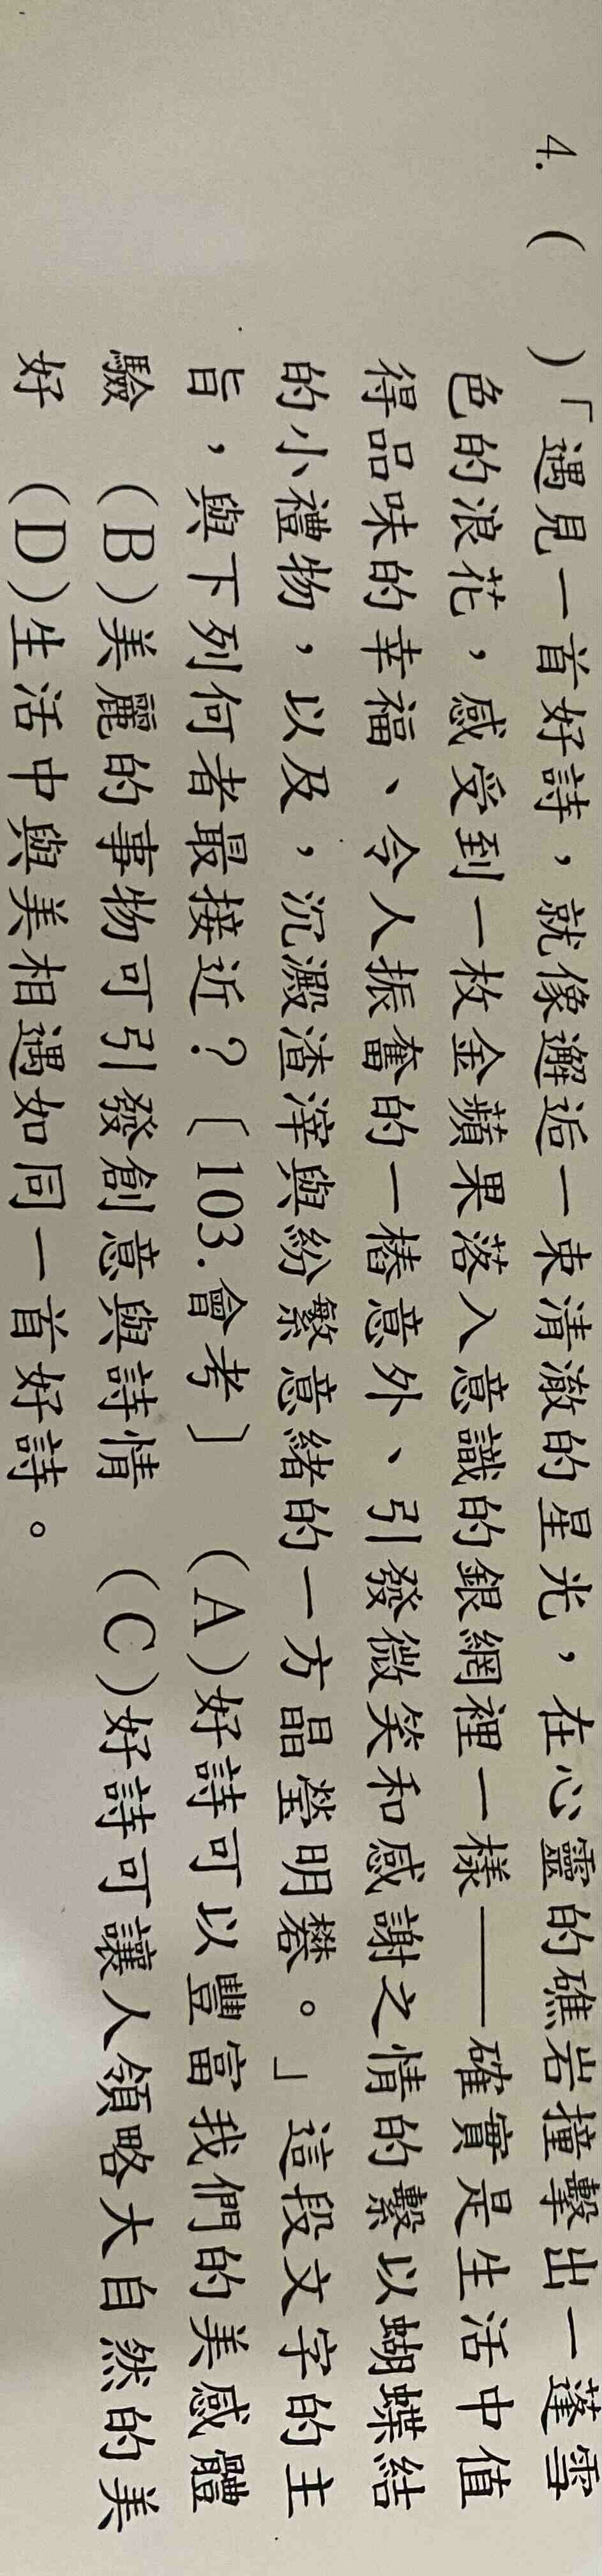 4. (　　)「遇見一首好詩，就像邂逅一束清澈的星光，在心靈的礁岩撞擊出一蓬雪
色的浪花，感受到一枚金蘋果落入意識的銀網裡一樣——確實是生活中值
得品味的幸福、令人振奮的一樁意外、引發微笑和感謝之情的繫以蝴蝶結
的小禮物，以及，沉澱渣滓與紛繁意緒的一方晶瑩明礬。」這段文字的主
旨，與下列何者最接近？〔103.會考〕　(A)好詩可以豐富我們的美感體
驗　(B)美麗的事物可引發創意與詩情　(C)好詩可讓人領略大自然的美
好　(D)生活中與美相遇如同一首好詩。